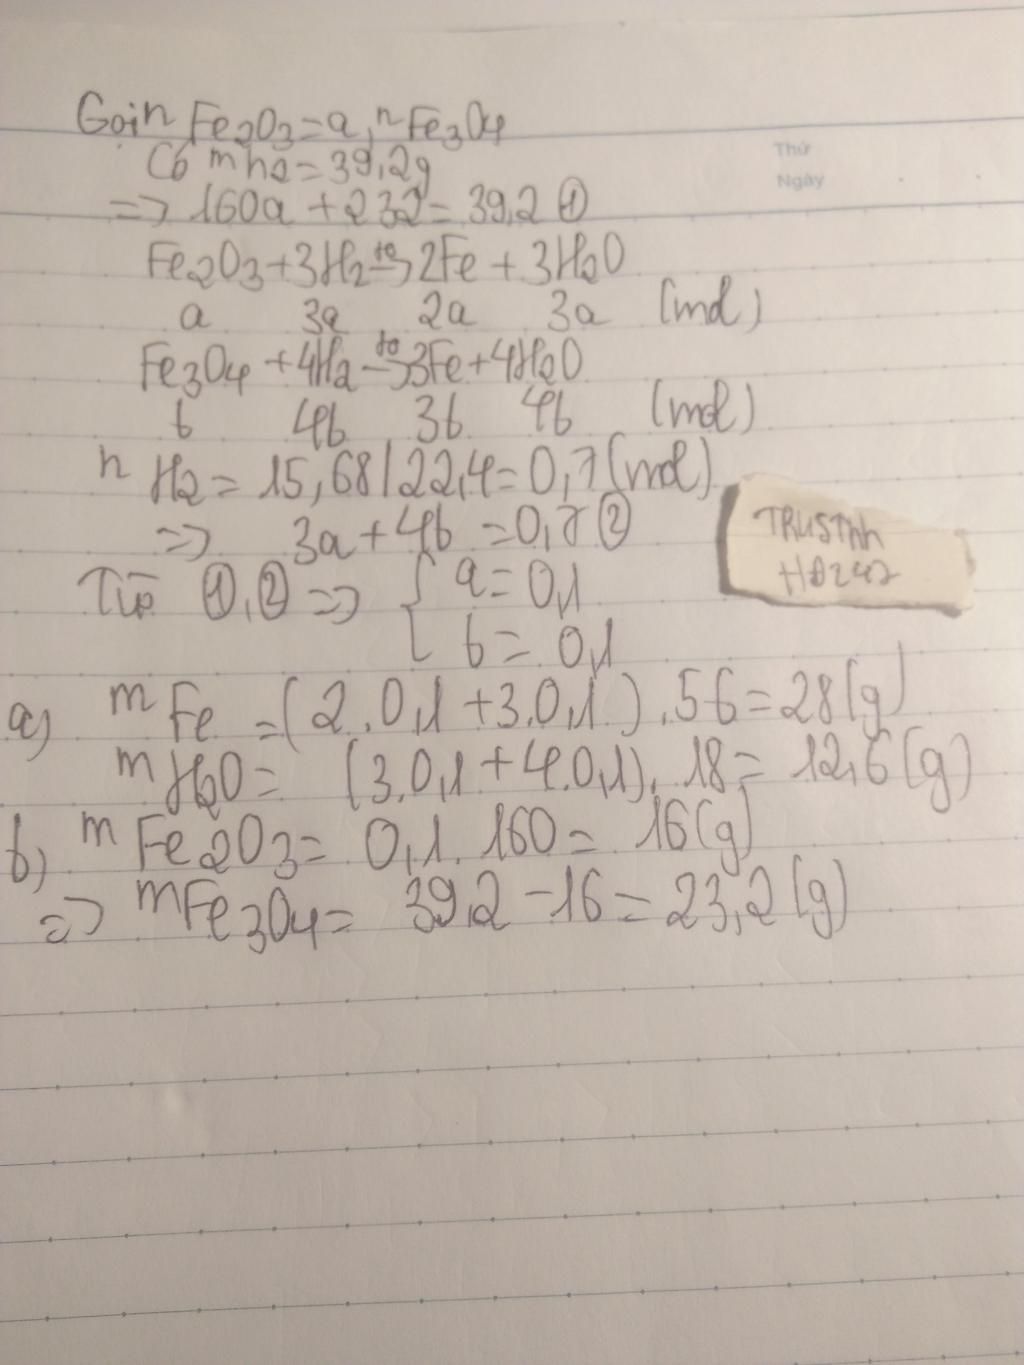 Gọi n Fe2O3 = a, n Fe3O4
Có m h2 = 39,2g
=> 160a + 232 = 39,2 ①
Thứ
Ngày
Fe2O3 + 3H2 to→ 2Fe + 3H2O
a 3a 2a 3a (mol)
Fe3O4 + 4H2 to→ 3Fe + 4H2O
b 4b 3b 4b (mol)
n H2 = 15,68/22,4 = 0,7 (mol)
=> 3a + 4b = 0,7 ②
TRUSTnh
HĐ247
Từ ①,② => { a = 0,1
b = 0,1
a) m Fe = (2.0,1 + 3.0,1).56 = 28 (g)
m H2O = (3.0,1 + 4.0,1).18 = 12,6 (g)
b) m Fe2O3 = 0,1.160 = 16 (g)
=> m Fe3O4 = 39,2 - 16 = 23,2 (g)